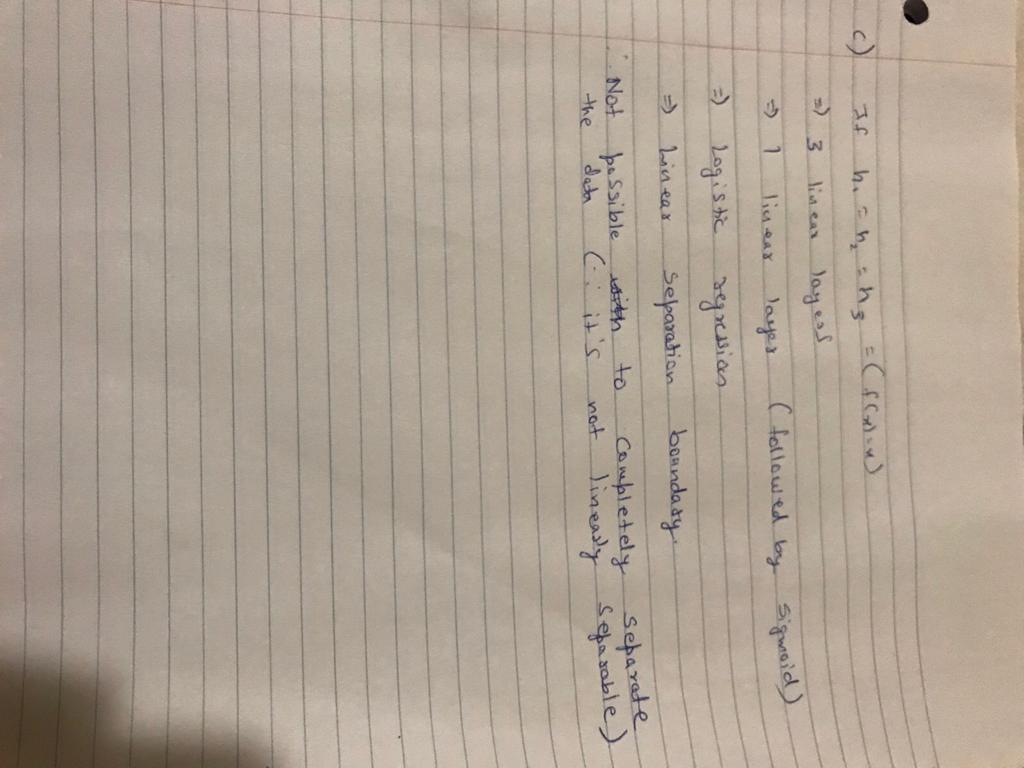 c) If h₁ = h₂ = h₃ = (f(x)=x)
⇒ 3 linear layers
⇒ 1 linear layer (followed by sigmoid)
⇒ Logistic regression
⇒ Linear separation boundary.
∴ Not possible to completely separate
the data (∵ it's not linearly separable)